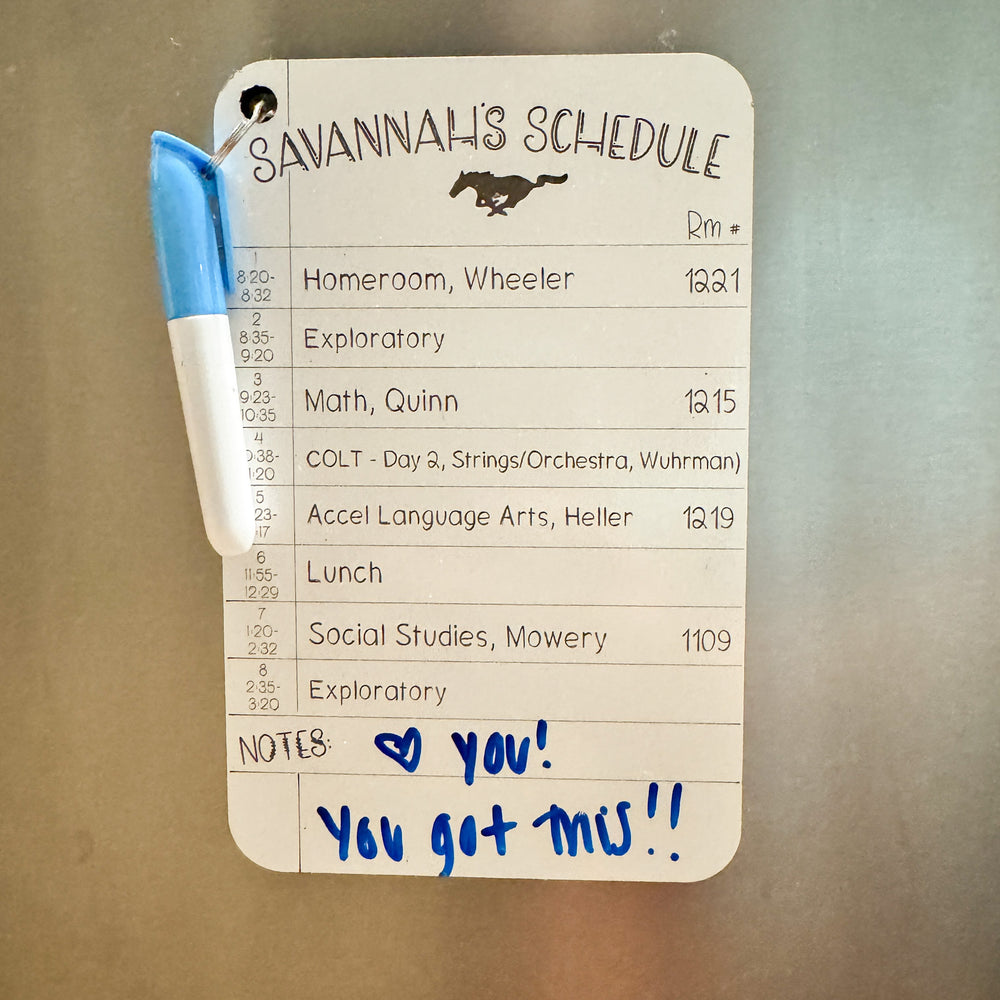 SAVANNAH'S SCHEDULE
Rm #
1
8:20-
8:32
Homeroom, Wheeler 1221
2
8:35-
9:20
Exploratory
3
9:23-
10:35
Math, Quinn 1215
4
COLT - Day 2, Strings/Orchestra, Wuhrman)
5
Accel Language Arts, Heller 1219
6
11:55-
12:29
Lunch
7
1:20-
2:32
Social Studies, Mowery 1109
8
2:35-
3:20
Exploratory
NOTES: ♡ you!
You got this!!